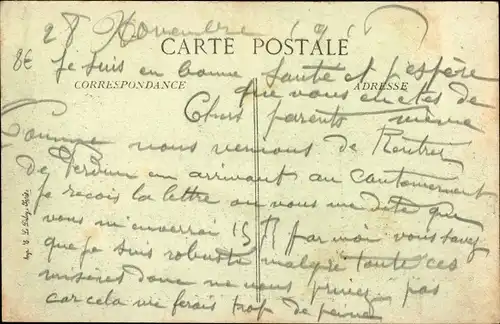 28 Novembre 191
CARTE POSTALE
8€
Je suis en bonne santé et j'espère
CORRESPONDANCE
ADRESSE
que vous en etes de
Chers parents même
Comme nous venions de Rentrer
de Verdun en arrivant au cantonnement
je reçois la lettre ou vous me dite que
vous m'enverrai 15 par moi vous savez
que je suis robuste malgré toute ces
misères donc ne vous privez pas
car cela me ferais trop de peine